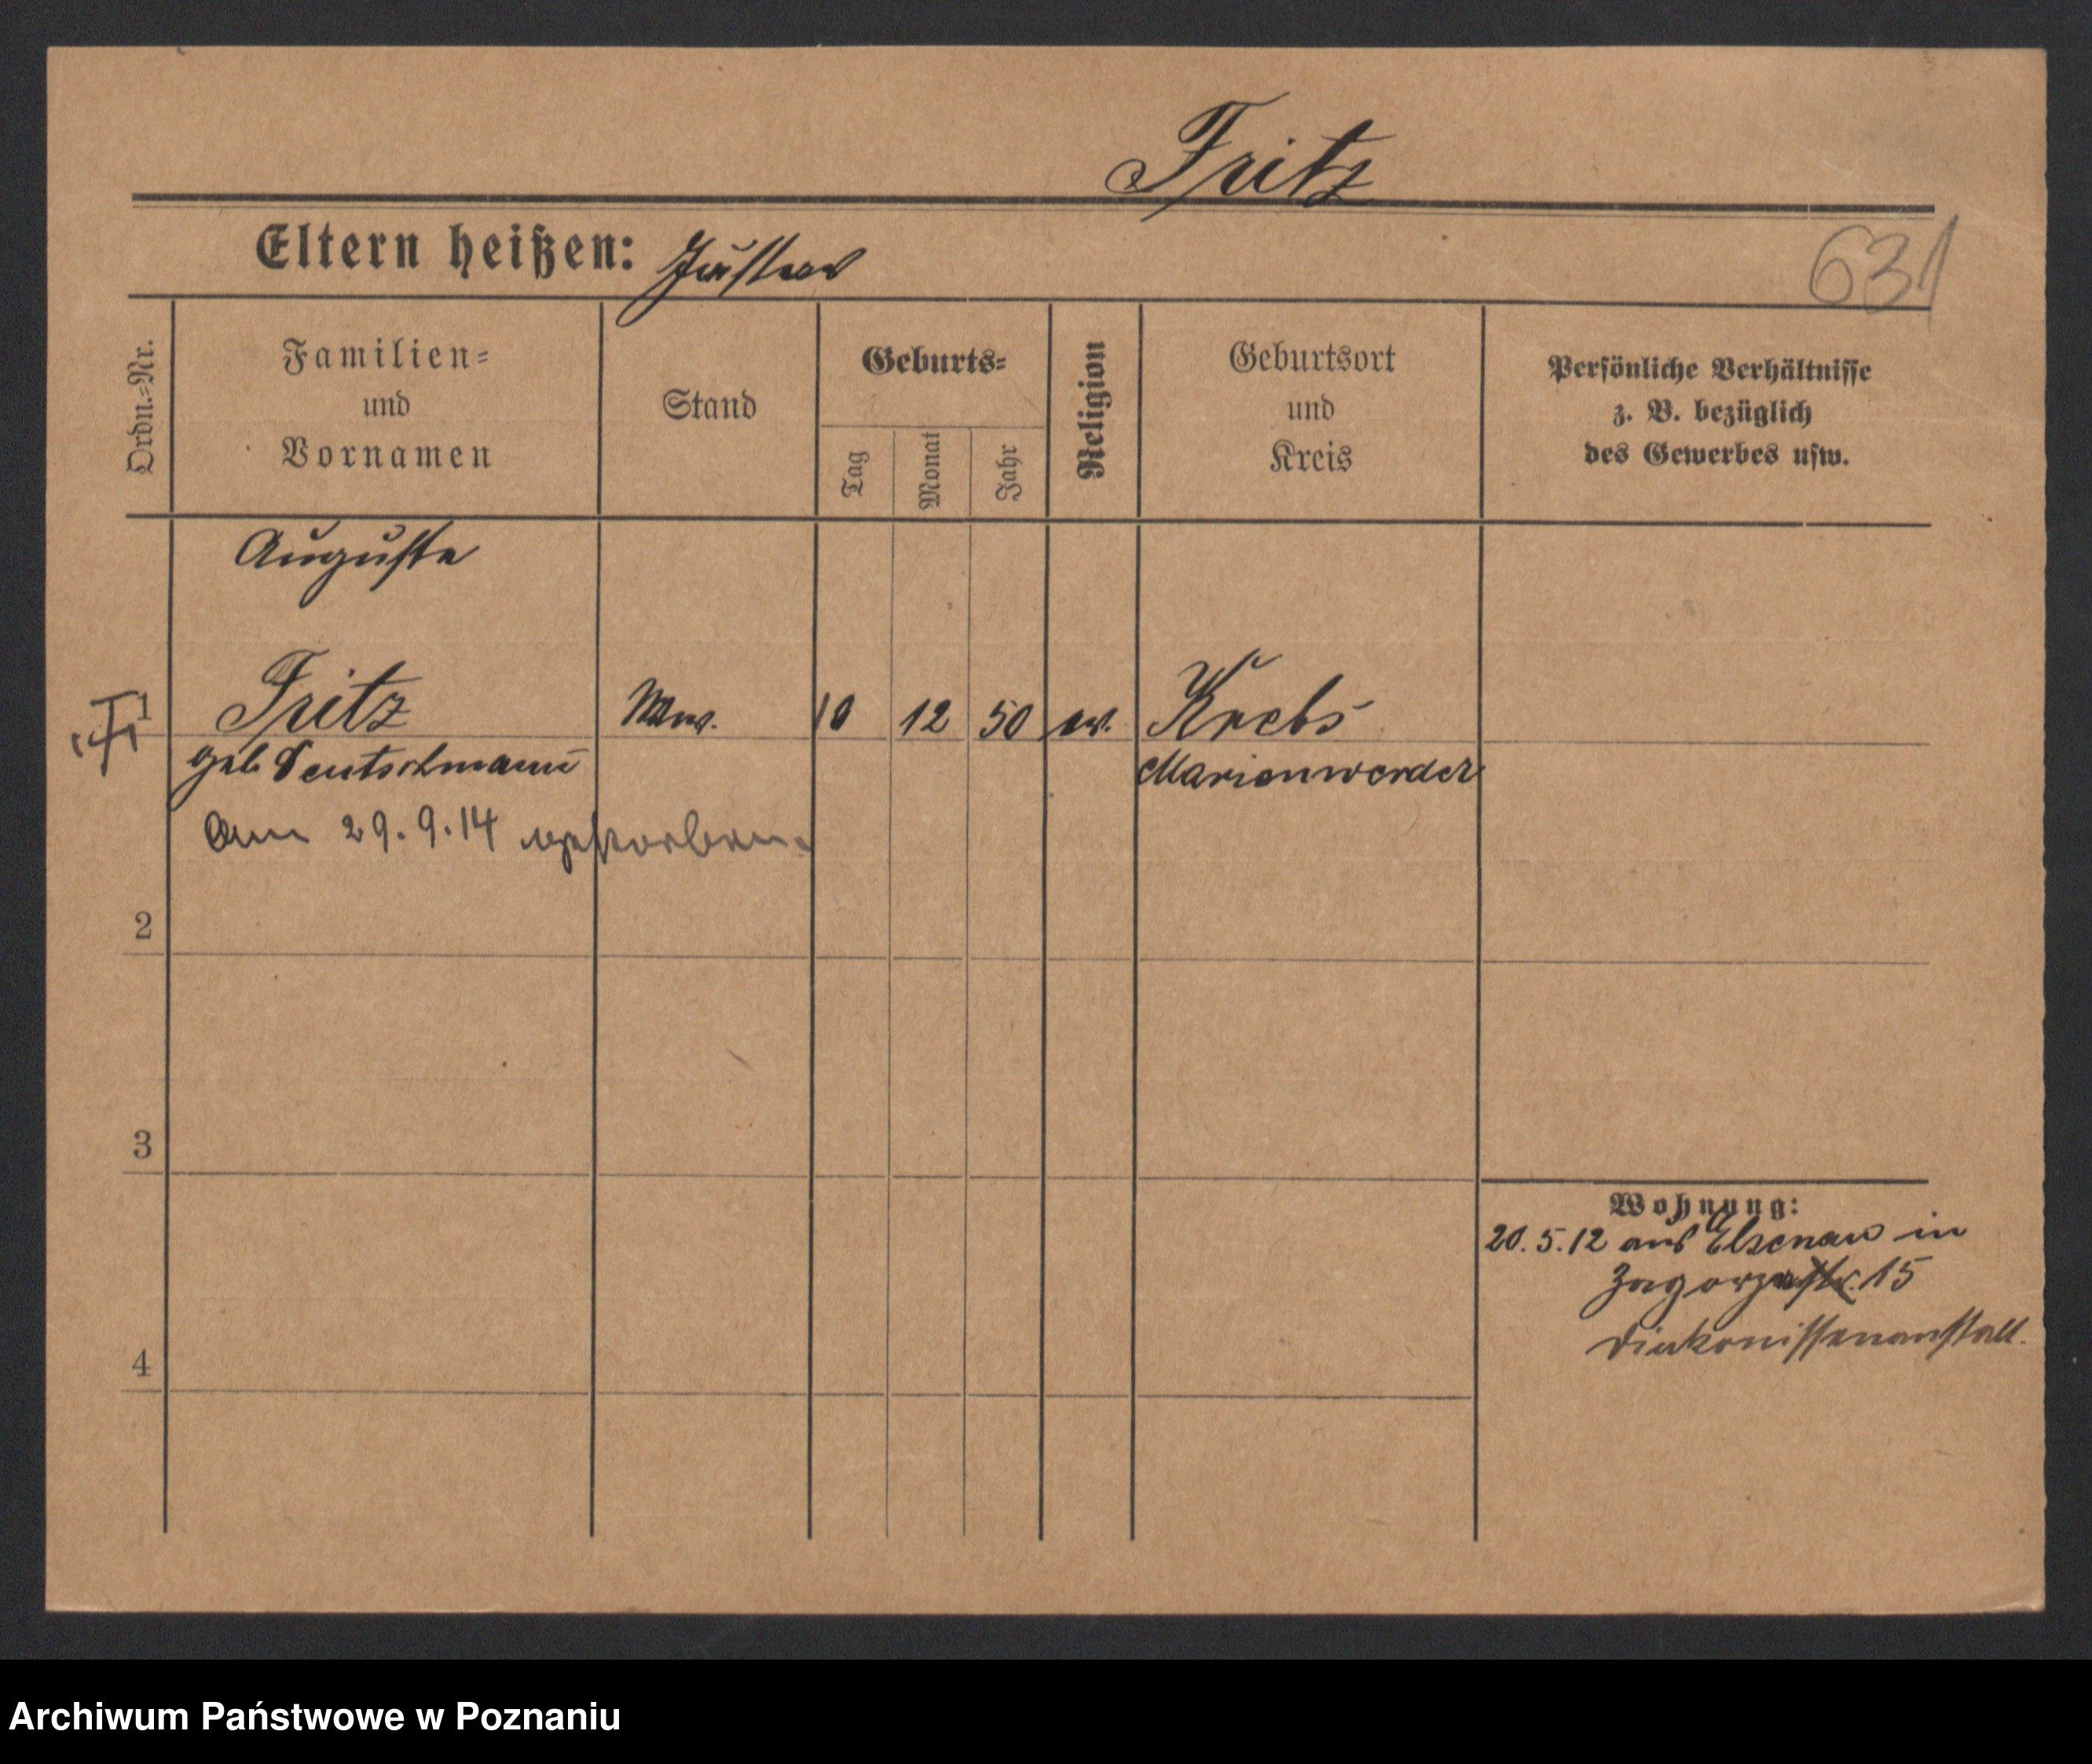 Fritz
Eltern heißen: Gustav
631
Ordn.=Nr.
Familien=
und
Vornamen
Stand
Geburts=
Tag
Monat
Jahr
Religion
Geburtsort
und
Kreis
Persönliche Verhältnisse
z. B. bezüglich
des Gewerbes usw.
Auguste
1 Fritz Wwe. 10 12 50 ev. Krebs
geb Deutschmann Marienwerder
Am 29.9.14 gestorben.
2
3
Wohnung:
20.5.12 aus Elsenau in
Zagorzestr. 15
Diakonissenanstalt.
4
Archiwum Państwowe w Poznaniu